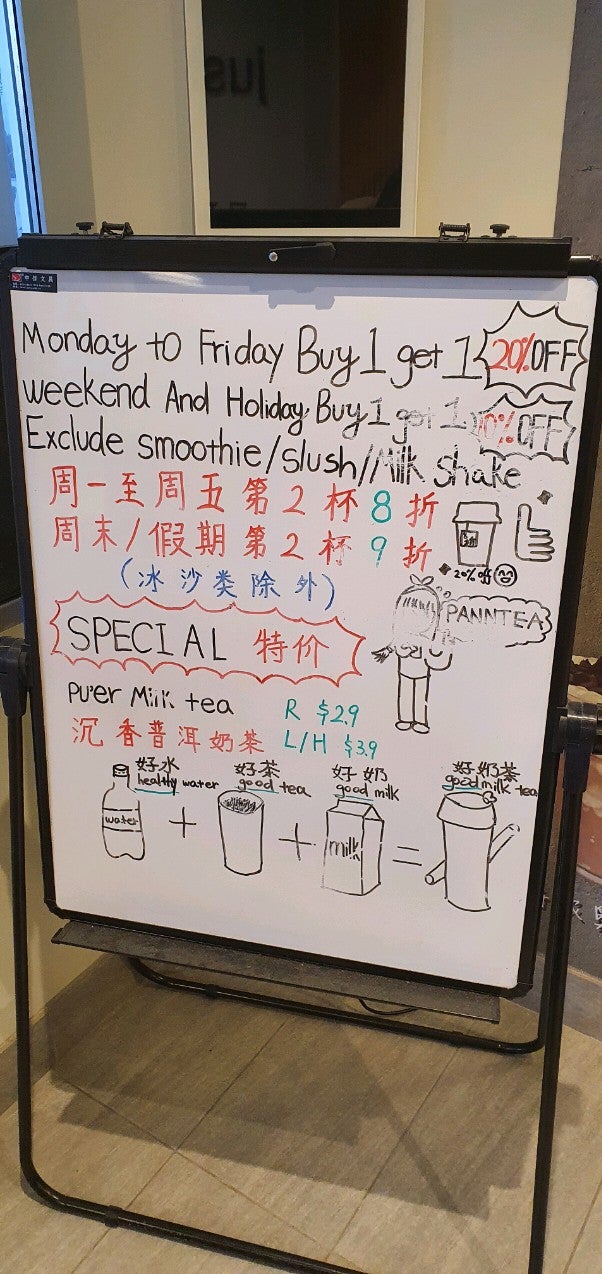 jus
Monday to Friday Buy 1 get 1 20% OFF
weekend And Holiday Buy 1 get 1 10% OFF
Exclude smoothie/slush/Milk shake
周一至周五第2杯8折
周末/假期第2杯9折
(冰沙类除外)
20% off
PANNTEA
SPECIAL 特价
Pu'er Milk tea R $2.9
沉香普洱奶茶 L/H $3.9
好水 好茶 好奶 好奶茶
healthy water good tea good milk good milk tea
water + + milk =